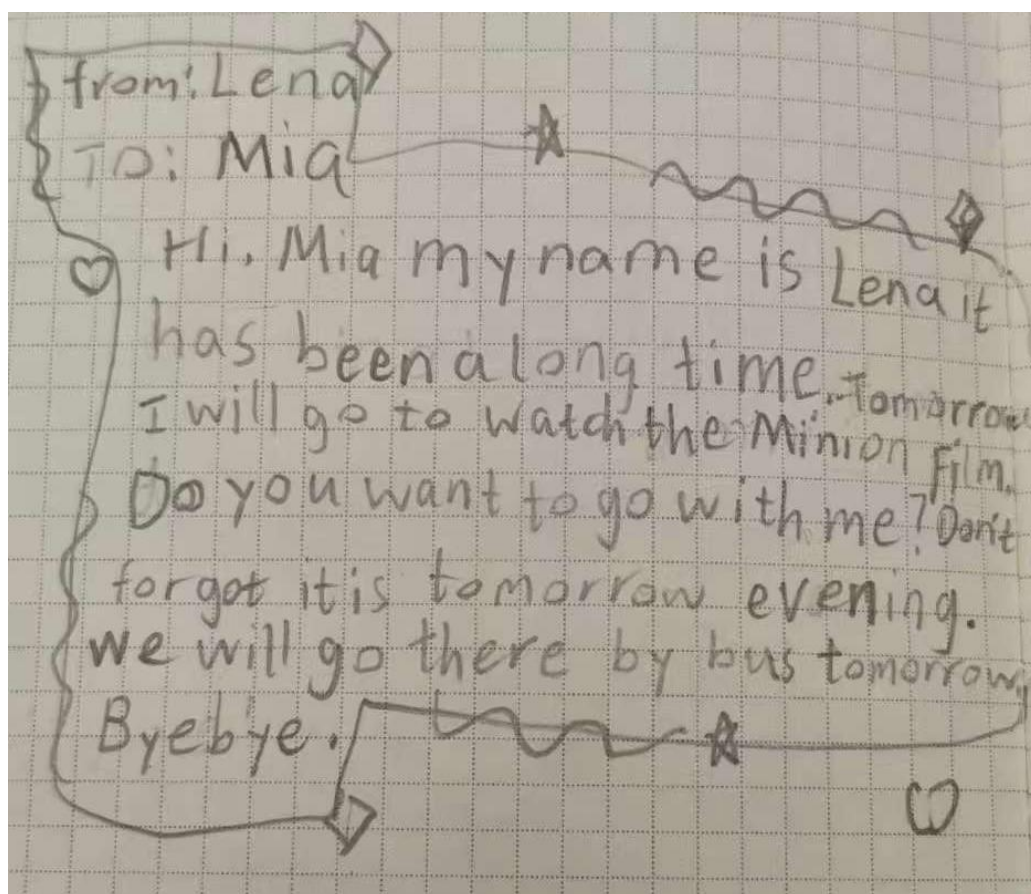 from: Lena
To: Mia
Hi, Mia my name is Lena it
has been a long time. Tomorrow
I will go to watch the Minion Film.
Do you want to go with me? Don't
forgot it is tomorrow evening.
we will go there by bus tomorrow.
Byebye.